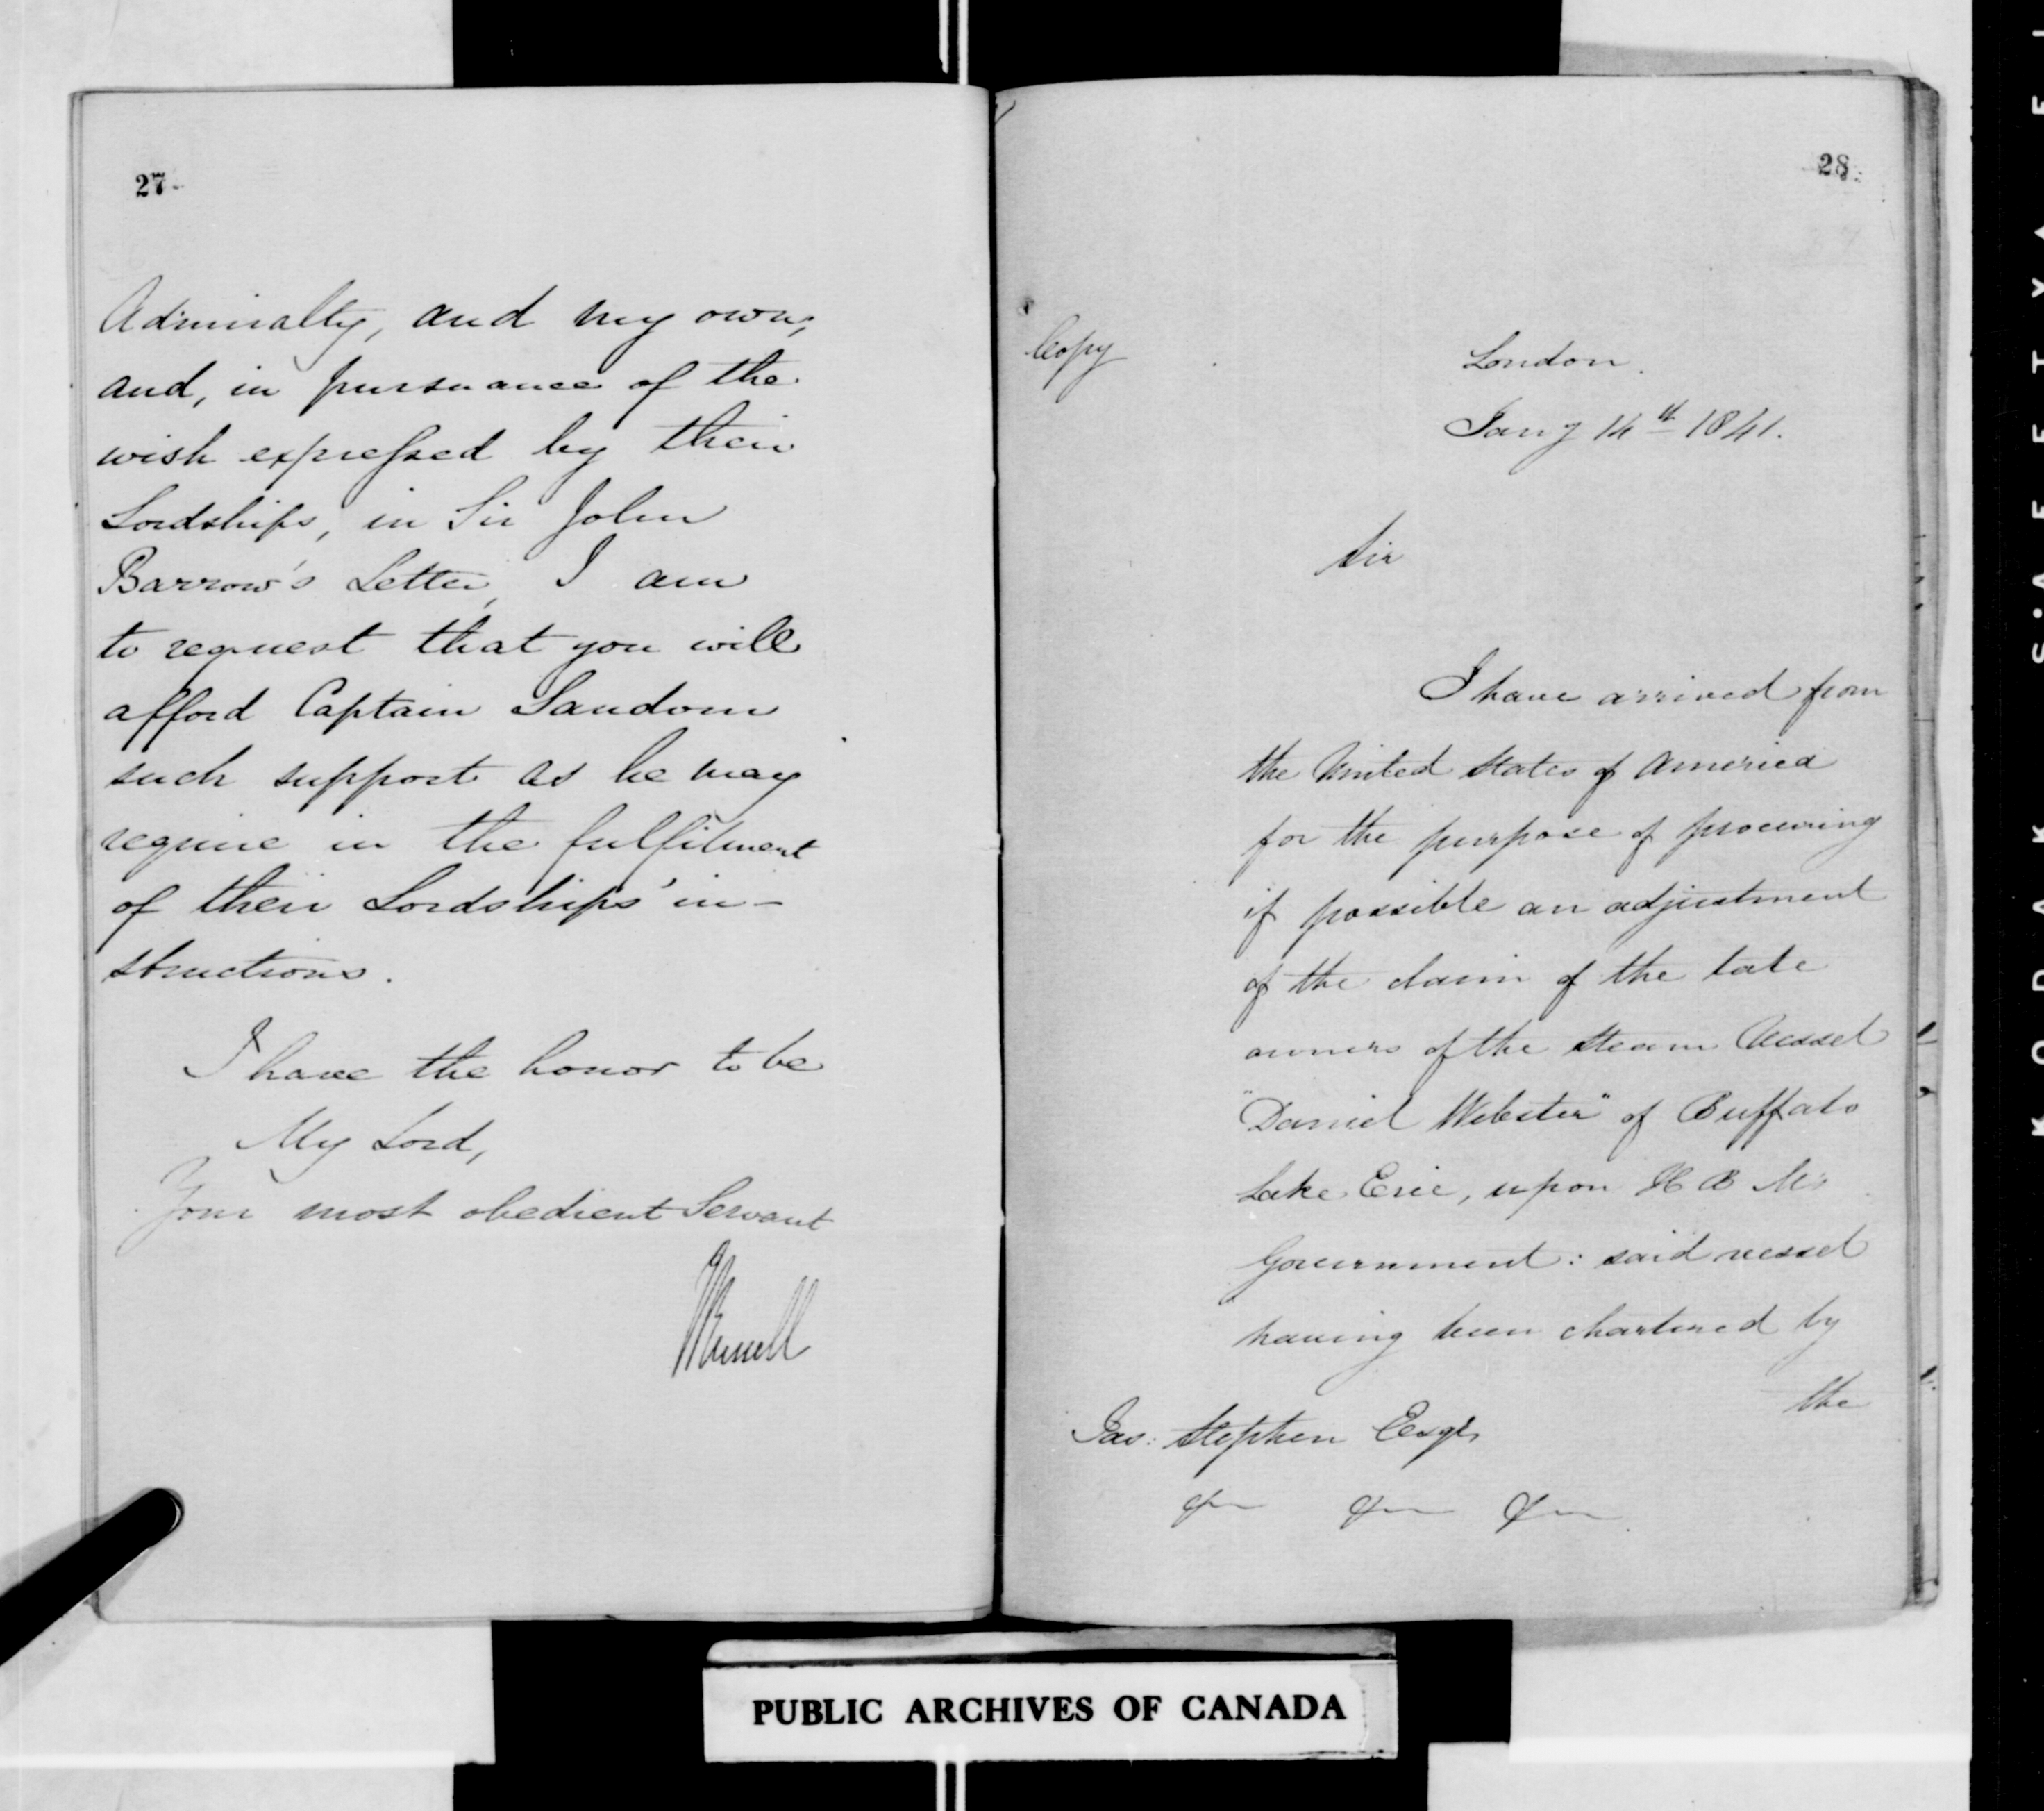 27
Admiralty, and my own;
and, in pursuance of the
wish expressed by their
Lordships, in Sir John
Barrow's Letter, I am
to request that you will
afford Captain Sandom
such support as he may
require in the fulfilment
of their Lordships' in-
structions.
I have the honor to be
My Lord,
Your most obedient Servant
J Russell
28
Copy
London.
Jany 14th 1841.
Sir
I have arrived from
the United States of America
for the purpose of procuring
if possible an adjustment
of the claim of the late
owners of the Steam Vessel
"Daniel Webster" of Buffalo
Lake Erie, upon H B M's
Government: said vessel
having been chartered by
the
Jas: Stephen Esqr
&c &c &c
PUBLIC ARCHIVES OF CANADA
KODAK S'AFETY